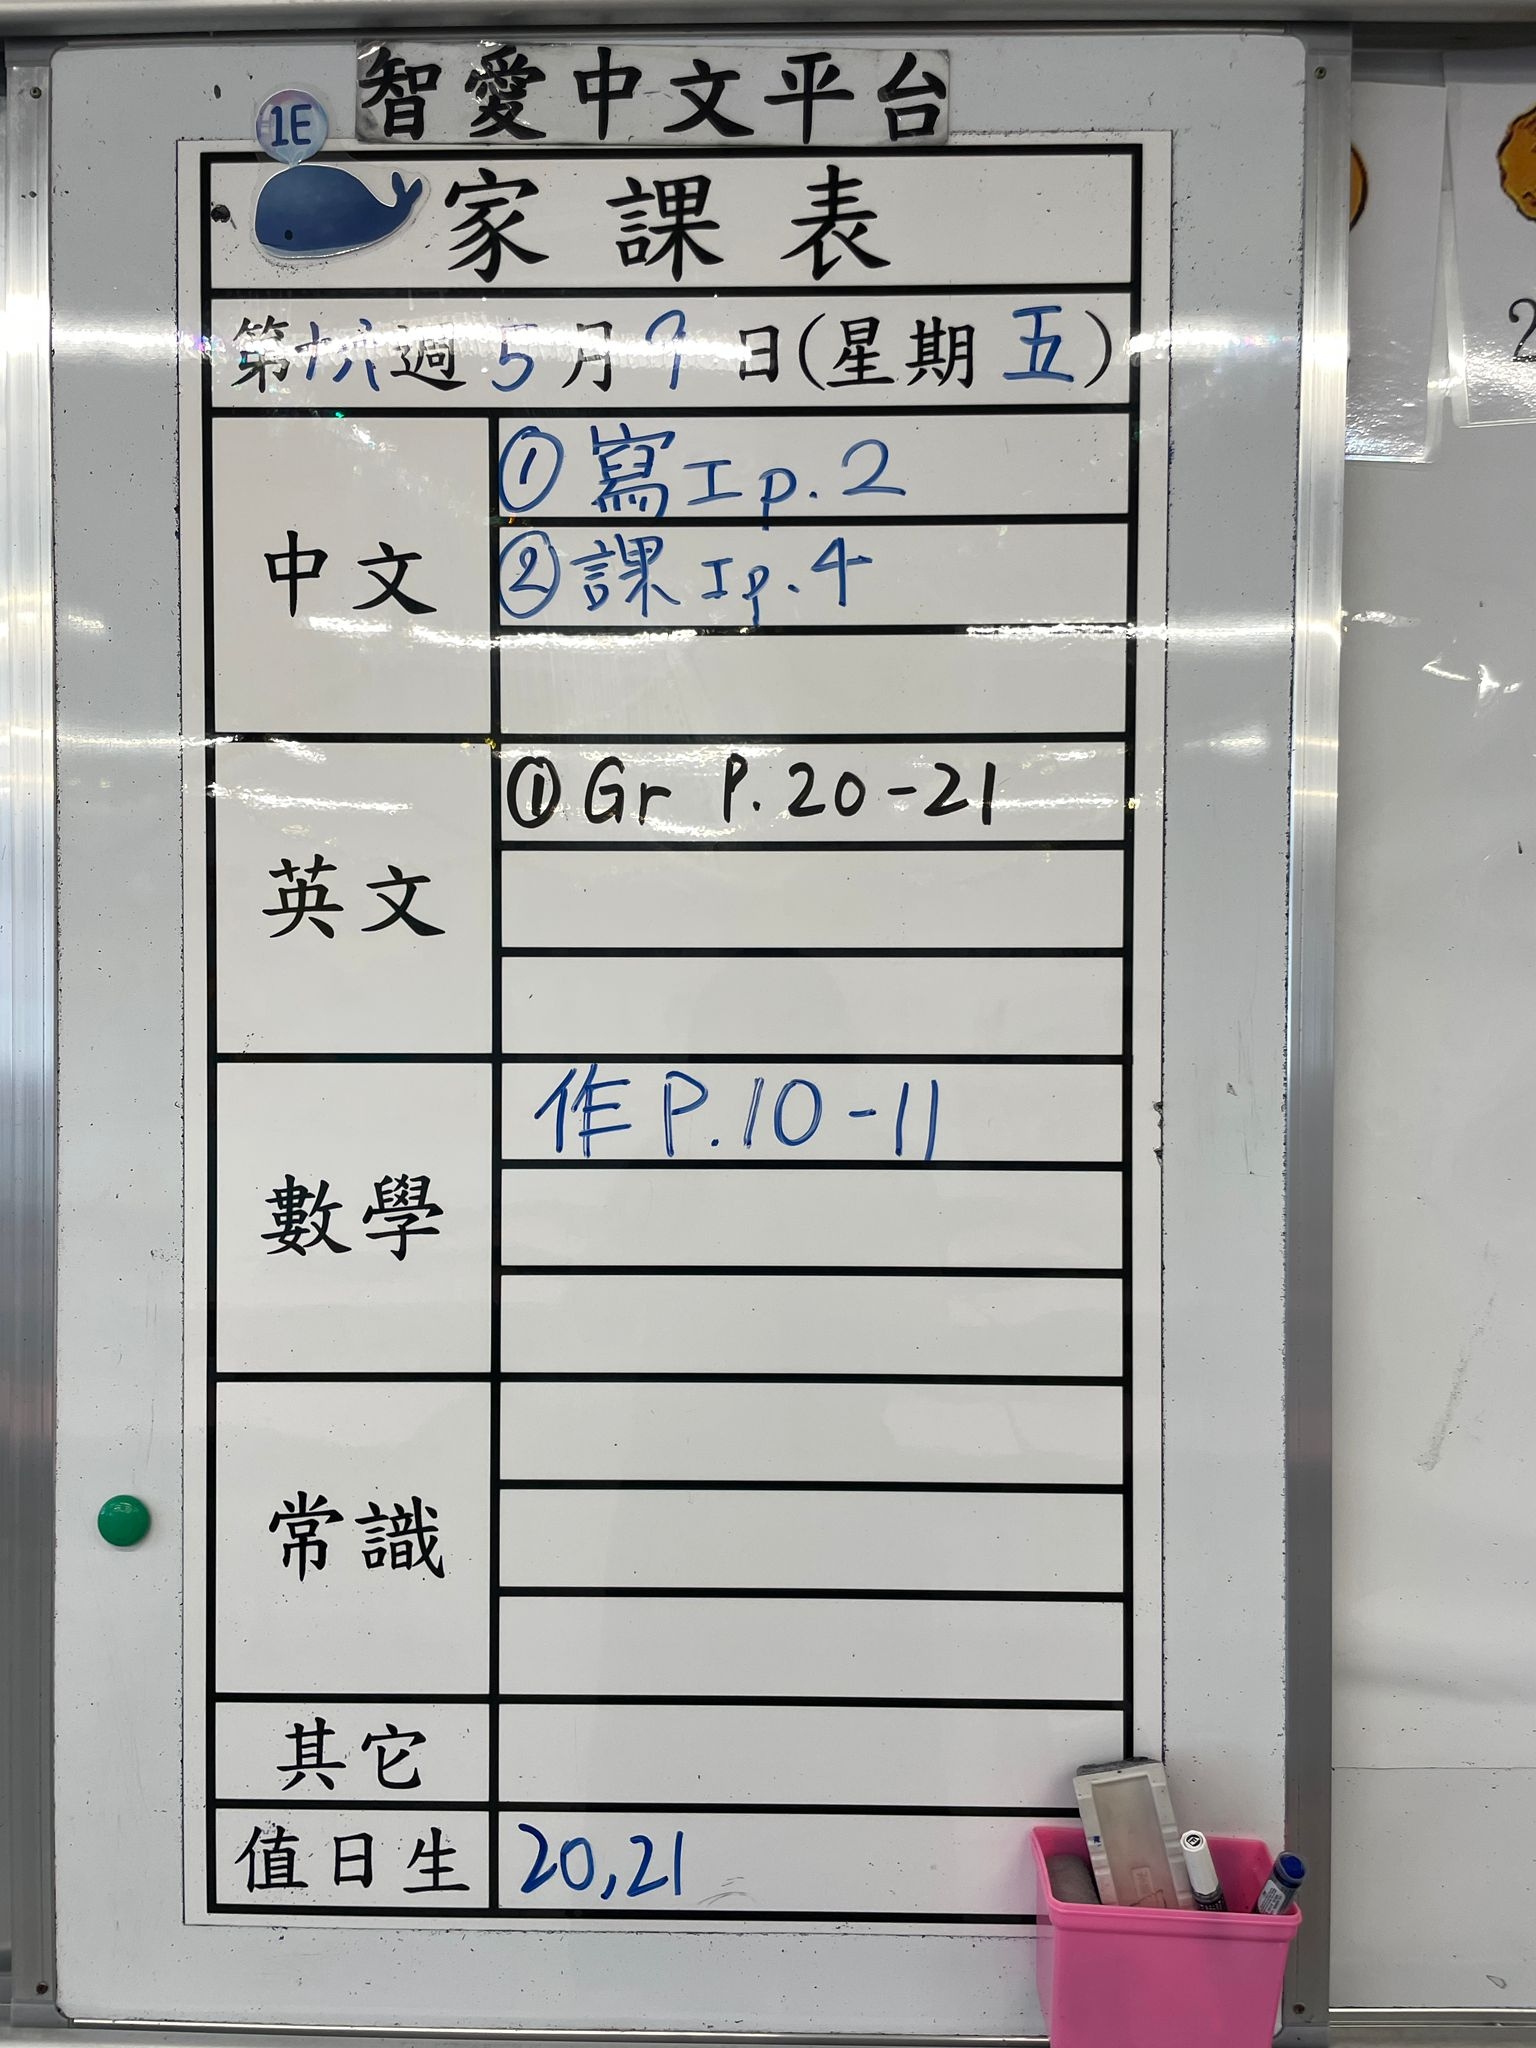 智愛中文平台
1E
家課表
第十六週 5月9日(星期五)
中文
①寫工p.2
②課工p.4
英文
①Gr P.20-21
數學
作P.10-11
常識
其它
值日生
20,21
2